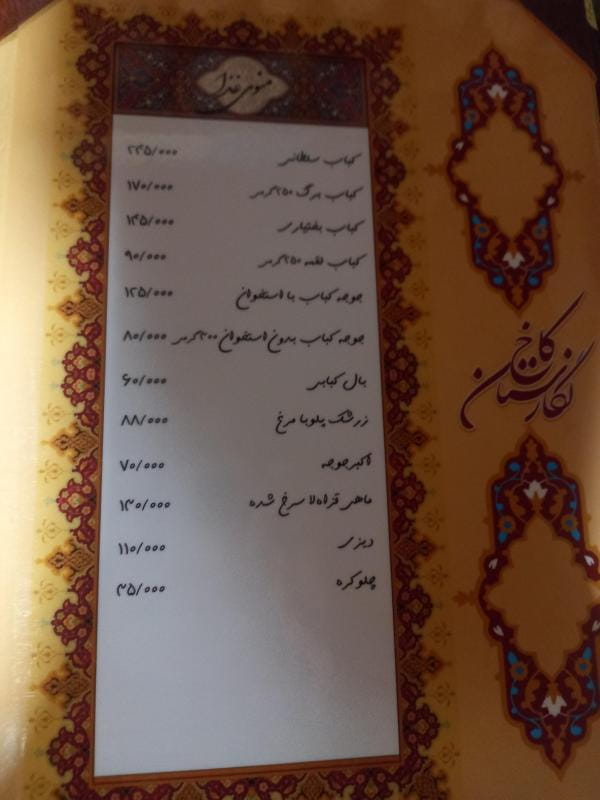 منوی غذا
کباب سلطانی ۲۳۵/۰۰۰
کباب برگ ۲۵۰گرمی ۱۷۰/۰۰۰
کباب بختیاری ۱۴۵/۰۰۰
کباب لقمه ۲۵۰گرمی ۹۰/۰۰۰
جوجه کباب با استخوان ۱۲۵/۰۰۰
جوجه کباب بدون استخوان ۳۰۰گرمی ۸۰/۰۰۰
بال کبابی ۶۰/۰۰۰
زرشک پلو با مرغ ۸۸/۰۰۰
اکبر جوجه ۷۰/۰۰۰
ماهی قزل‌آلا سرخ شده ۱۳۰/۰۰۰
دیزی ۱۱۰/۰۰۰
چلوکره ۳۵/۰۰۰
کاخ
نگارستان